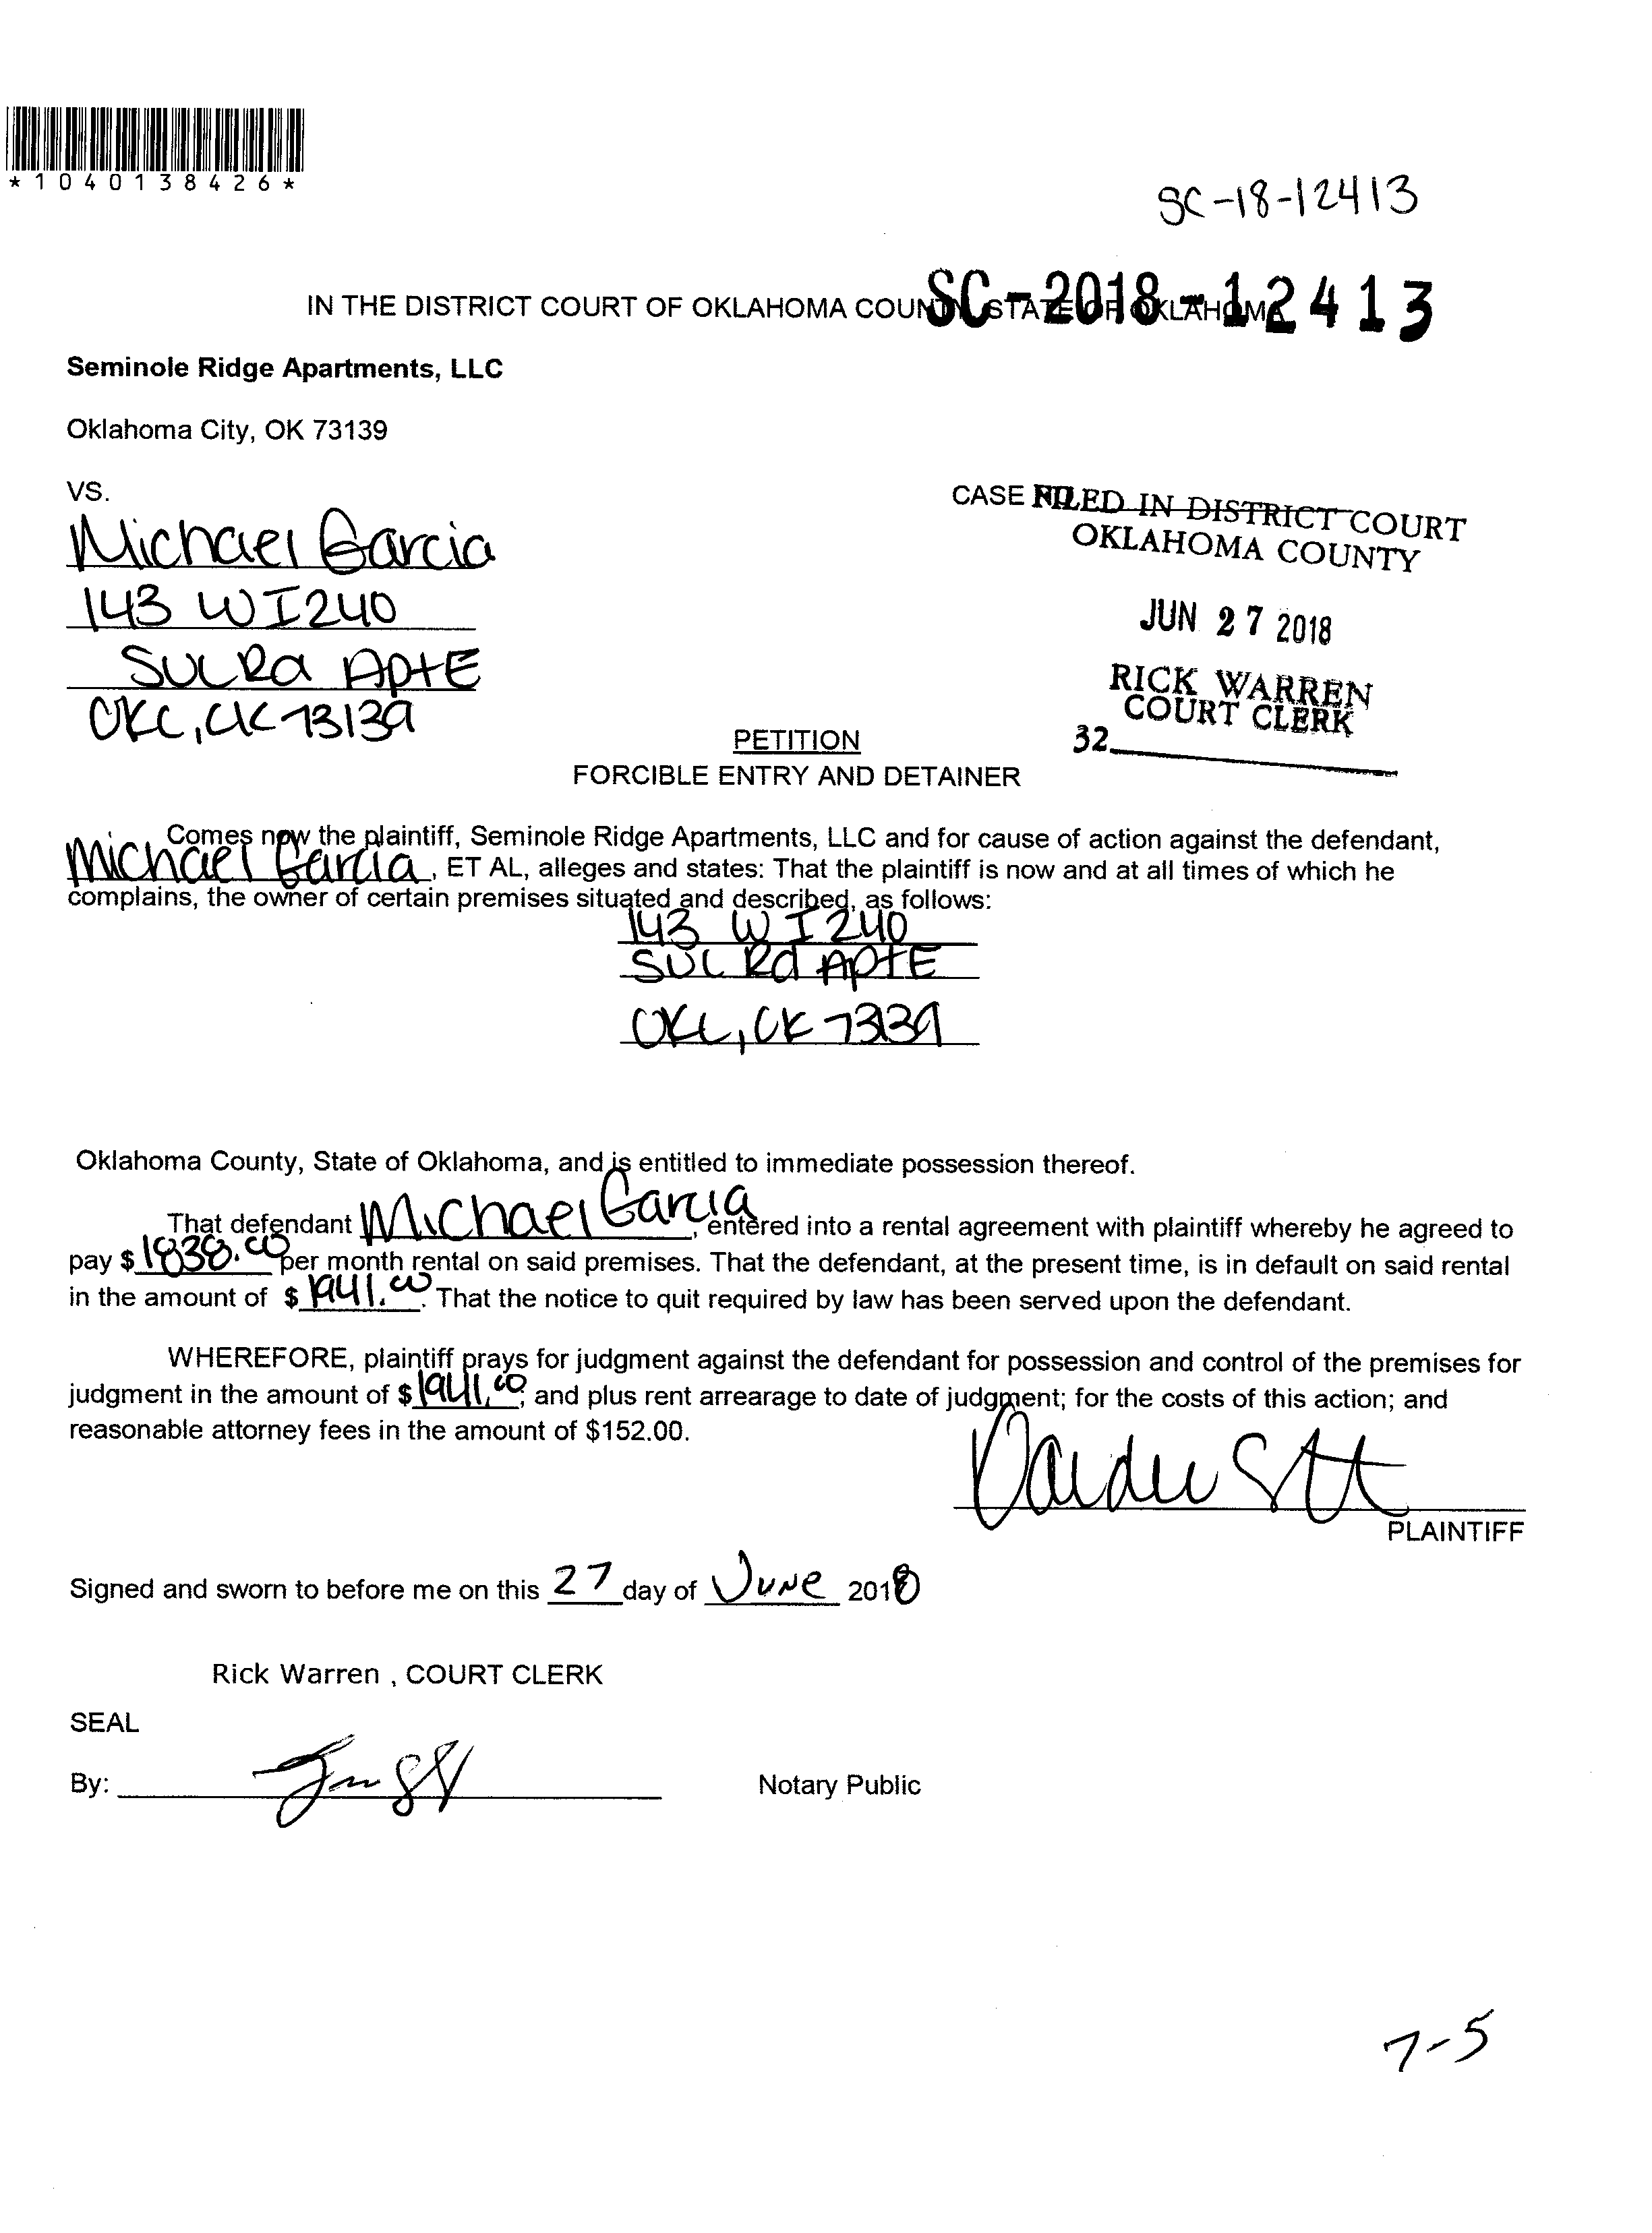 *1040138426*
SC-18-12413
SC-2018-12413
IN THE DISTRICT COURT OF OKLAHOMA COUNTY, STATE OF OKLAHOMA
Seminole Ridge Apartments, LLC
Oklahoma City, OK 73139
VS.
CASE NO.
FILED IN DISTRICT COURT
OKLAHOMA COUNTY
JUN 27 2018
RICK WARREN
COURT CLERK
32
Michael Garcia
143 W I240
Rd Apt E
OKC, OK 73139
PETITION
FORCIBLE ENTRY AND DETAINER
Comes now the plaintiff, Seminole Ridge Apartments, LLC and for cause of action against the defendant,
Michael Garcia, ET AL, alleges and states: That the plaintiff is now and at all times of which he
complains, the owner of certain premises situated and described, as follows:
143 W I240
Rd Apt E
OKC, OK 73139
Oklahoma County, State of Oklahoma, and is entitled to immediate possession thereof.
That defendant Michael Garcia, entered into a rental agreement with plaintiff whereby he agreed to
pay $1838.00 per month rental on said premises. That the defendant, at the present time, is in default on said rental
in the amount of $1941.00. That the notice to quit required by law has been served upon the defendant.
WHEREFORE, plaintiff prays for judgment against the defendant for possession and control of the premises for
judgment in the amount of $1941.00; and plus rent arrearage to date of judgment; for the costs of this action; and
reasonable attorney fees in the amount of $152.00.
PLAINTIFF
Signed and sworn to before me on this 27 day of June 2018
Rick Warren , COURT CLERK
SEAL
By:
Notary Public
7-5